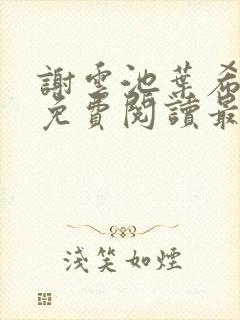 謝雲池葉希
免費閱讀最
淺笑如煙